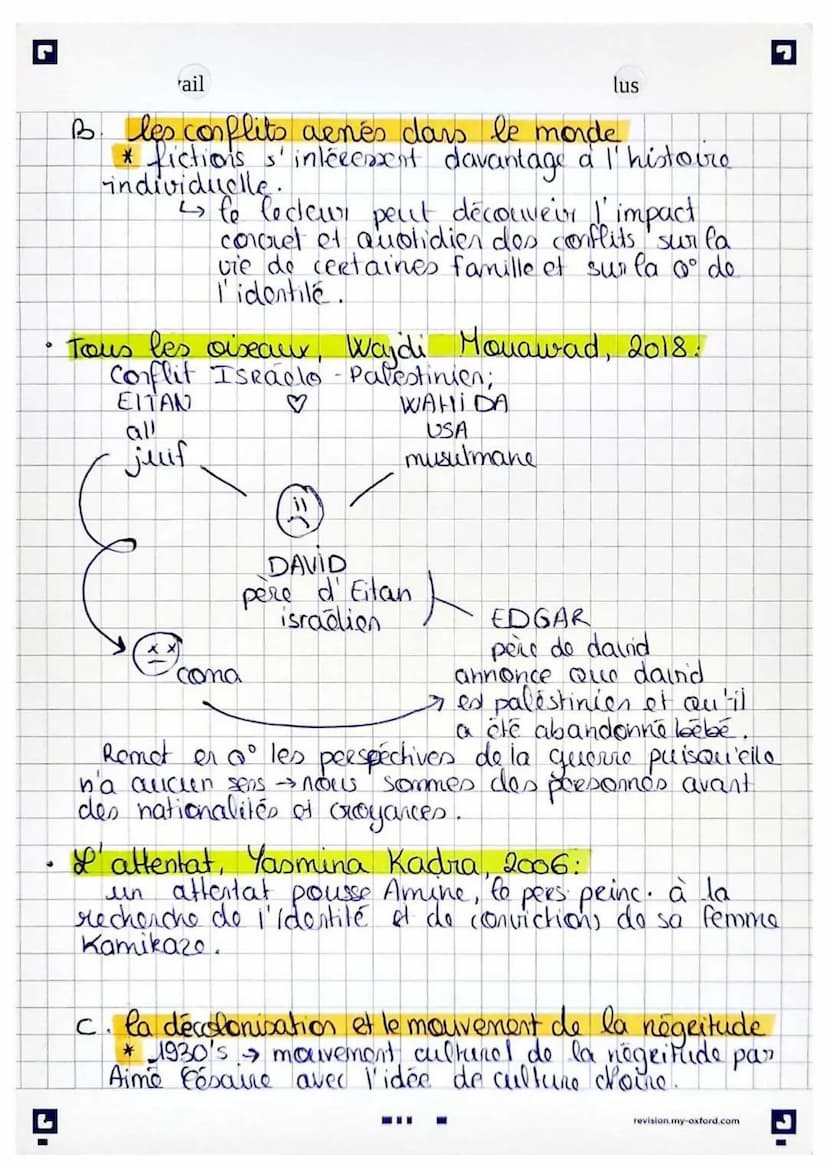 ail lus
B. les conflits armés dans le monde
* fictions s'intéressent davantage à l'histoire
individuelle.
↳ le lecteur peut découvrir l'impact
concret et quotidien des conflits sur la
vie de certaines famille et sur la q° de
l'identité.
• Tous les oiseaux, Wajdi Mouawad, 2018:
Conflit Israélo-Palestinien;
EITAN ♡ WAHIDA
all USA
juif musulmane
DAVID
père d'Eitan
israélien
EDGAR
père de david
coma annonce que david
est paléstinien et qu'il
a été abandonné bébé.
Remet en q° les perspéctives de la guerre puisqu'elle
n'a aucun sens → nous sommes des personnes avant
des nationalités et croyances.
• L'attentat, Yasmina Kadra, 2006:
un attentat pousse Amine, le pers. princ. à la
recherche de l'identité et de convictions de sa femme
Kamikaze.
C. la décolonisation et le mouvement de la négritude
* 1930's → mouvement culturel de la négritude par
Aimé Césaire avec l'idée de culture
revision.my-oxford.com